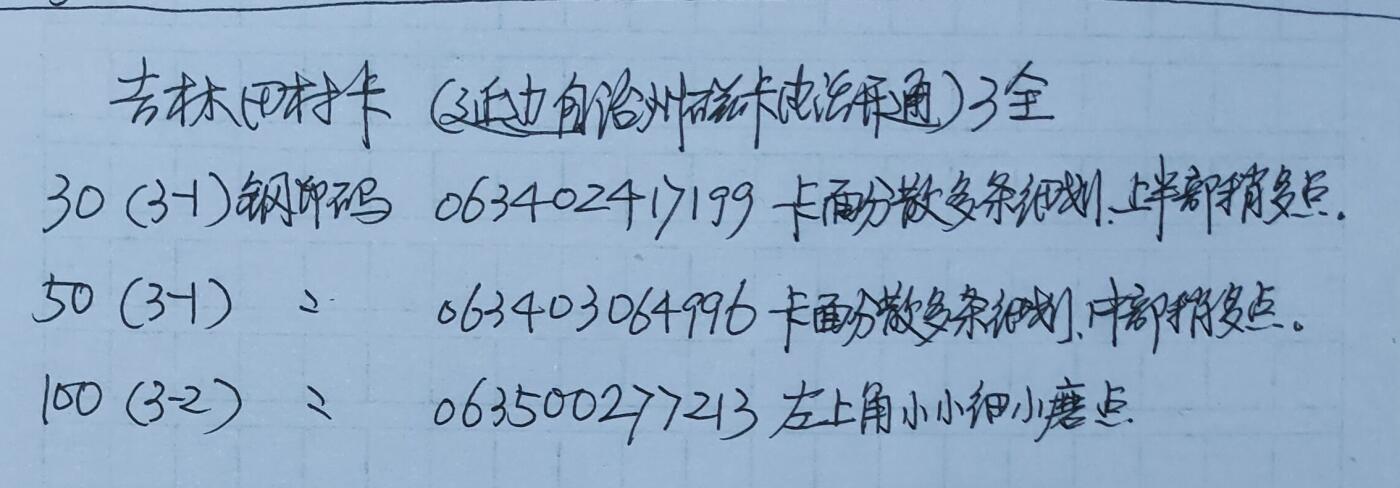 吉林田村卡 (延边自治州磁卡电话开通)3全
30 (3-1)钢印码 063402417199 卡面分散多条细划、上半部稍多点.
50 (3-1) 〃 063403064996 卡面分散多条细划、中部稍多点。
100 (3-2) 〃 063500277213 左上角小小细小磨点